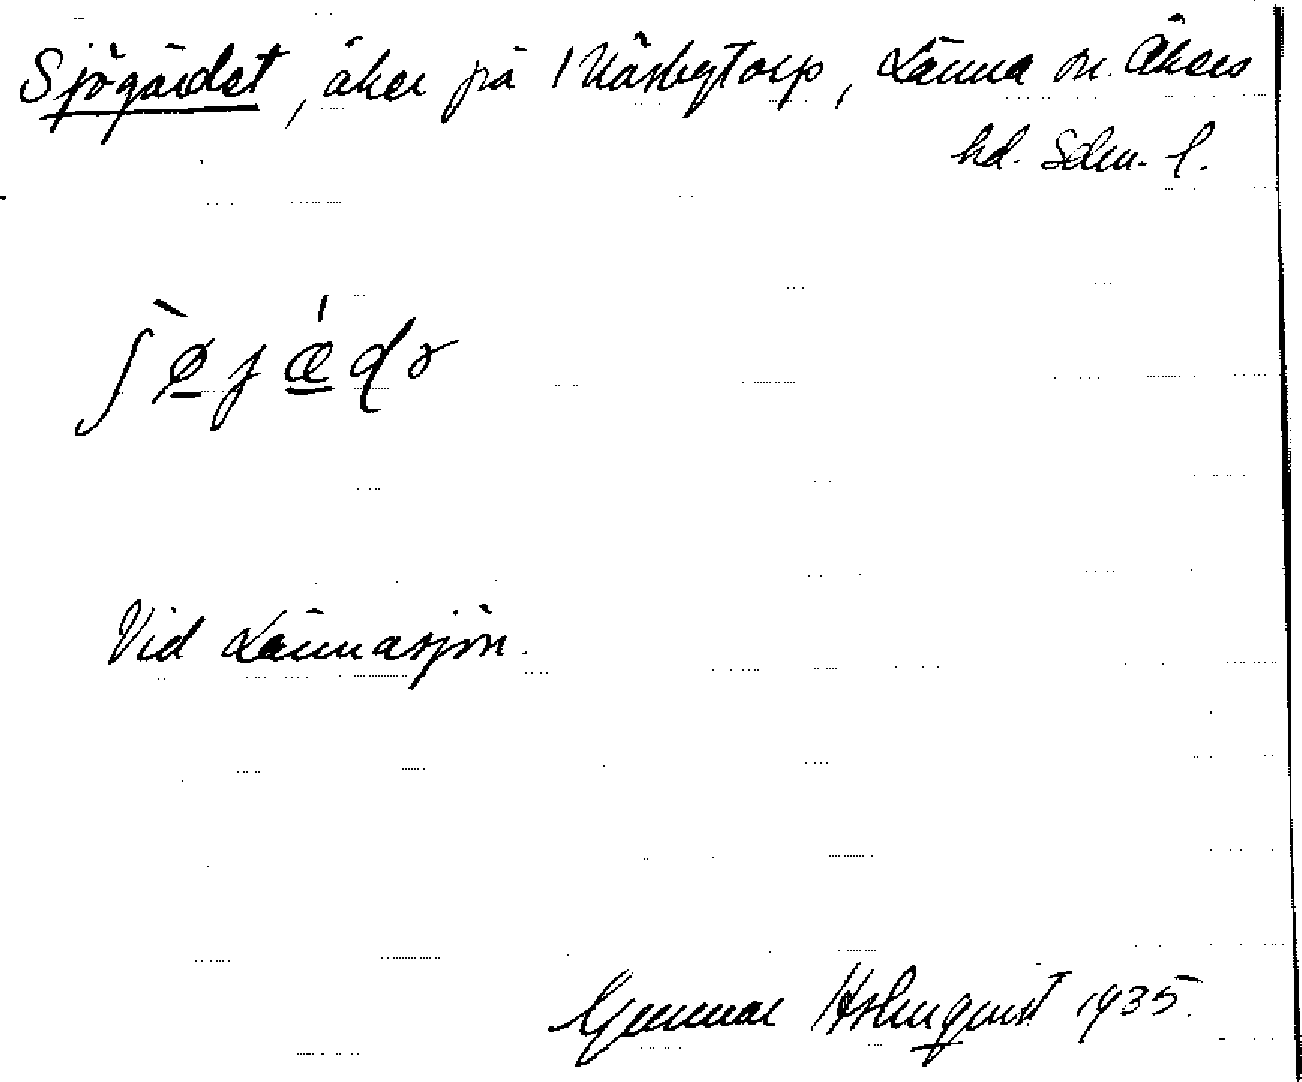 Sjögärdet, åker på 1 Näsbytorp, Länna sn. Åkers
hd. Sdm. l.
ʃø̀jǽdə
Vid Lännasjön.
Gunnar Holmquist 1935.